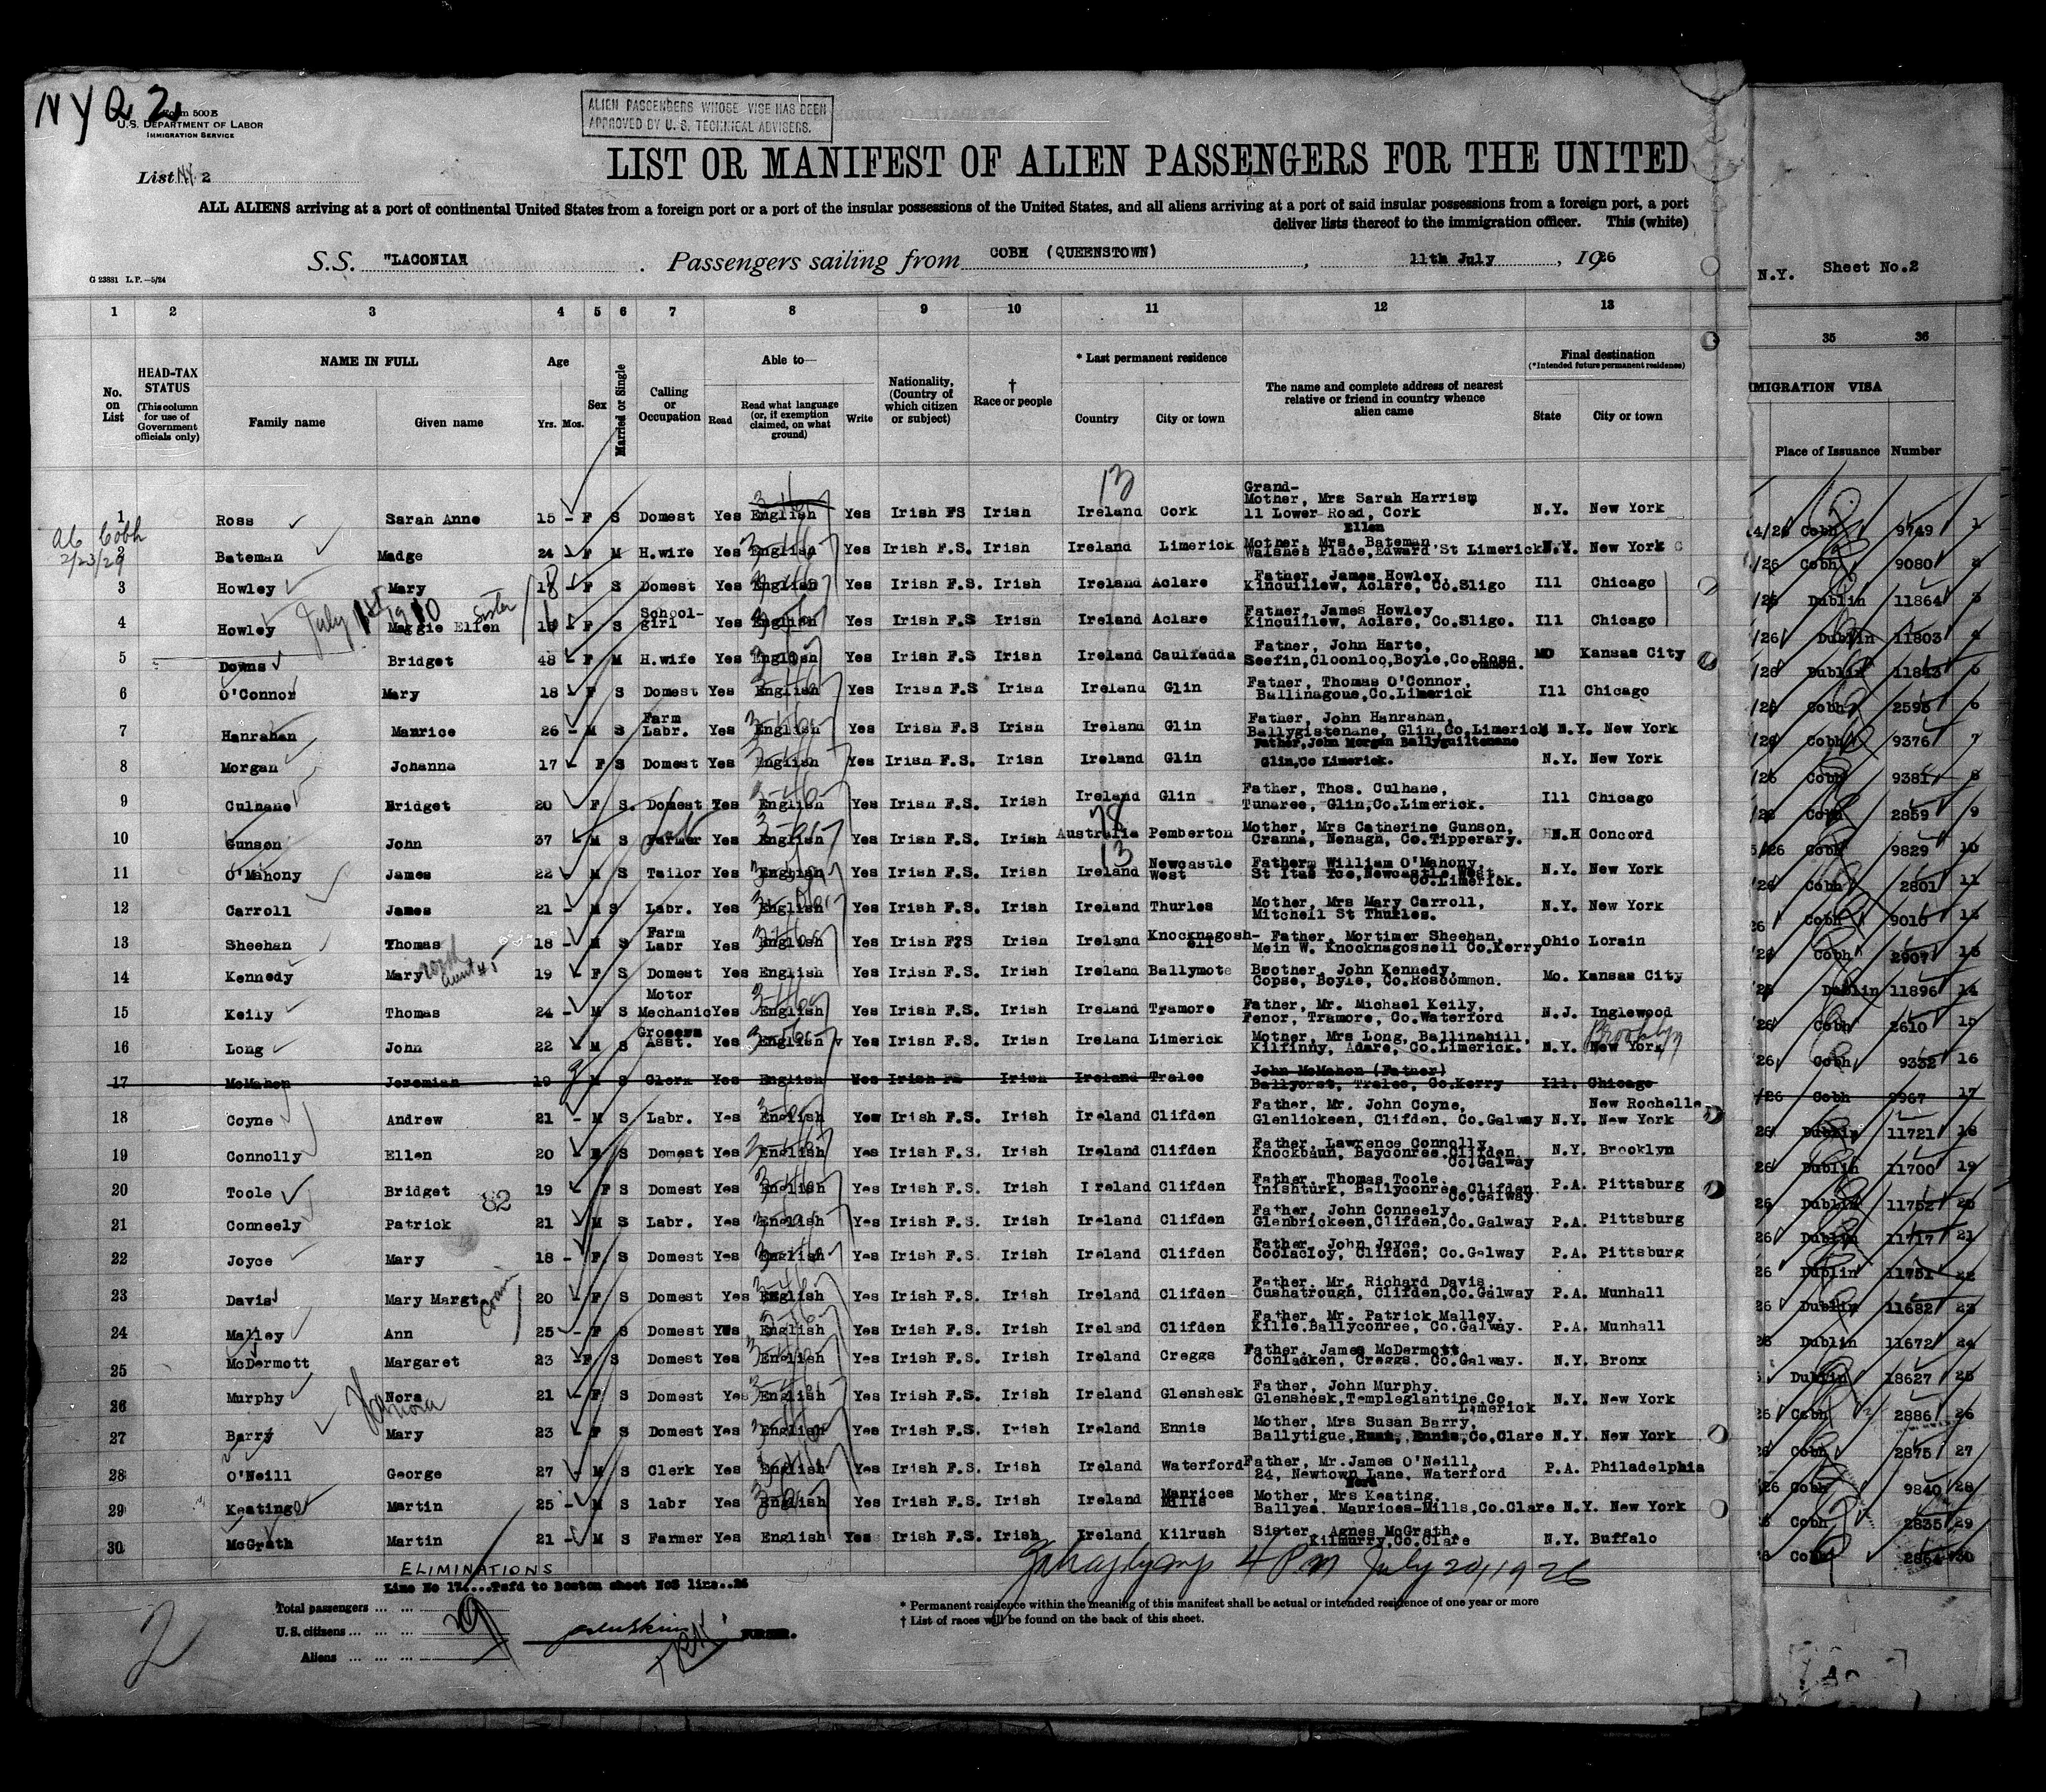 NYQ 2
Form 500 B
U.S. DEPARTMENT OF LABOR
IMMIGRATION SERVICE
ALIEN PASSENGERS WHOSE VISE HAS BEEN
APPROVED BY U. S. TECHNICAL ADVISERS.
List NY. 2
LIST OR MANIFEST OF ALIEN PASSENGERS FOR THE UNITED
ALL ALIENS arriving at a port of continental United States from a foreign port or a port of the insular possessions of the United States, and all aliens arriving at a port of said insular possessions from a foreign port, a port
deliver lists thereof to the immigration officer. This (white)
S.S. "LACONIA" . Passengers sailing from COBH (QUEENSTOWN) , 11th July , 1926
G 23881 L.P.—5/24
N.Y. Sheet No.2
1 2 3 4 5 6 7 8 9 10 11 12 13 35 36
No. on List
HEAD-TAX STATUS (This column for use of Government officials only)
NAME IN FULL
Family name Given name
Age
Yrs. Mos.
Sex
Married or Single
Calling or Occupation
Able to—
Read Read what language (or, if exemption claimed, on what ground) Write
Nationality, (Country of which citizen or subject)
† Race or people
* Last permanent residence
Country City or town
The name and complete address of nearest relative or friend in country whence alien came
Final destination
(*Intended future permanent residence)
State City or town
IMIGRATION VISA
Place of Issuance Number
13
ab Cobh
2/23/29
1 Ross Sarah Anne 15 - F S Domest Yes English Yes Irish FS Irish Ireland Cork Grand-Mother, Mrs Sarah Harrism 11 Lower Road, Cork N.Y. New York 4/26 Cobh 9749 1
2 Bateman Madge 24 F M H.wife Yes English Yes Irish F.S. Irish Ireland Limerick Mother, Mrs. Ellen Bateman Walshes Place, Edward St Limerick N.Y. New York /26 Cobh 9080 2
3 Howley Mary 18 F S Domest Yes English Yes Irish F.S. Irish Ireland Aclare Father, James Howley, Kincuillew, Aclare, Co.Sligo Ill Chicago /26 Dublin 11864 3
July 1st 1910 Sister
4 Howley Maggie Ellen F S School-girl Yes English Yes Irish F.S Irish Ireland Aclare Father, James Howley Kincuillew, Aclare, Co.Sligo. Ill Chicago /26 Dublin 11803 4
5 Downs Bridget 48 F M H.wife Yes English Yes Irish F.S Irish Ireland Caulfadda Father, John Harte, Seefin,Cloonloo,Boyle,Co.Roscommon. MO Kansas City /26 Dublin 11843 5
6 O'Connor Mary 18 F S Domest Yes English Yes Irish F.S Irish Ireland Glin Father, Thomas O'Connor, Ballinagoue,Co.Limerick Ill Chicago /26 Cobh 2595 6
7 Hanrahan Maurice 26 - M S Farm Labr. Yes English Yes Irish F.S Irish Ireland Glin Father, John Hanrahan, Ballygistenane, Glin,Co.Limerick N.Y. New York /26 Cobh 9376 7
8 Morgan Johanna 17 F S Domest Yes English Yes Irish F.S. Irish Ireland Glin Father,John Morgan Ballyguiltenane Glin,Co Limerick. N.Y. New York /26 Cobh 9381 8
9 Culhane Bridget 20 F S. Domest Yes English Yes Irish F.S. Irish Ireland Glin Father, Thos. Culhane, Tunaree, Glin,Co.Limerick. Ill Chicago /26 Cobh 2859 9
78
10 Gunson John 37 M S Farmer Yes English Yes Irish F.S. Irish Australia Pemberton Mother, Mrs Catherine Gunson, Cranna, Nenagh, Co.Tipperary. N.H Concord 5/26 Cobh 9829 10
13
11 O'Mahony James 22 M S Tailor Yes English Yes Irish F.S. Irish Ireland Newcastle West Fatherm William O'Mahony, St Itas Tce,Newcastle West, Co.Limerick. N.Y. New York /26 Cobh 2801 11
12 Carroll James 21 - M S Labr. Yes English Yes Irish F.S. Irish Ireland Thurles Mother, Mrs Mary Carroll, Mitchell St Thurles. N.Y. New York 26 Cobh 9010
13 Sheehan Thomas 18 M S Farm Labr Yes English Yes Irish F?S Irish Ireland Knocknagosh-ell Father, Mortimer Sheehan, Mein W. Knocknagoshell Co.Kerry Ohio Lorain /26 Cobh 2907
14 Kennedy Mary 19 - F S Domest Yes English Yes Irish F.S. Irish Ireland Ballymote Brother, John Kennedy, Copse, Boyle, Co.Roscommon. Mo. Kansas City Dublin 11896 14
15 Keily Thomas 24 - M S Motor Mechanic Yes English Yes Irish F.S. Irish Ireland Tramore Father, Mr. Michael Keily, Fenor, Tramore, Co.Waterford N.J. Inglewood /26 Cobh 2610 15
Brooklyn
16 Long John 22 M S Grocers Asst. Yes English Yes Irish F.S. Irish Ireland Limerick Mother, Mrs Long, Ballinahill, Kilfinny, Adare, Co.Limerick. N.Y. New York /26 Cobh 9332 16
17 McMahon Jeremiah 19 M S Clerk Yes English Yes Irish FS Irish Ireland Tralee John McMahon (Father) Ballyorst, Tralee, Co.Kerry Ill. Chicago /26 Cobh 9967 17
18 Coyne Andrew 21 - M S Labr. Yes English Yes Irish F.S. Irish Ireland Clifden Father, Mr. John Coyne, Glenlickeen, Clifden, Co.Galway N.Y. New Rochelle New York 26 Dublin 11721 18
19 Connolly Ellen 20 F S Domest Yes English Yes Irish F.S. Irish Ireland Clifden Father, Lawrence Connolly, Knockbaun, Bayconree,Clifden Co.Galway N.Y. Brooklyn 26 Dublin 11700 19
20 Toole Bridget 19 F S Domest Yes English Yes Irish F.S. Irish Ireland Clifden Father, Thomas Toole, Inishturk, Ballyconree,Clifden Co.Galway P.A. Pittsburg 26 Dublin 11752 20
82
21 Conneely Patrick 21 M S Labr. Yes English Yes Irish F.S. Irish Ireland Clifden Father, John Conneely, Glenbrickeen,Clifden,Co.Galway P.A. Pittsburg 26 Dublin 11717 21
22 Joyce Mary 18 - F S Domest Yes English Yes Irish F.S. Irish Ireland Clifden Father, John Joyce, Coolacloy, Clifden, Co.Galway P.A. Pittsburg 26 Dublin 11751 22
23 Davis Mary Margt 20 - F S Domest Yes English Yes Irish F.S. Irish Ireland Clifden Father, Mr. Richard Davis, Cushatrough, Clifden,Co.Galway P.A. Munhall 26 Dublin 11682 23
Cousin
24 Malley Ann 25 - F S Domest Yes English Yes Irish F.S. Irish Ireland Clifden Father, Mr. Patrick Malley. Kille.Ballyconree, Co.Galway. P.A. Munhall 26 Dublin 11672 24
25 McDermott Margaret 23 - F S Domest Yes English Yes Irish F.S. Irish Ireland Creggs Father, James McDermott, Conlacken, Creggs. Co.Galway. N.Y. Bronx Dublin 18627 25
26 Murphy Nora 21 - F S Domest Yes English Yes Irish F.S. Irish Ireland Glenshesk Father, John Murphy. Glenshesk,Templeglantine,Co. Limerick N.Y. New York 26 Cobh 2886 26
Hanora
27 Barry Mary 23 F S Domest Yes English Yes Irish F.S. Irish Ireland Ennis Mother, Mrs Susan Barry, Ballytigue, Ruan, Ennis,Co.Clare N.Y. New York 26 Cobh 2875 27
28 O'Neill George 27 M S Clerk Yes English Yes Irish F.S. Irish Ireland Waterford Father, Mr.James O'Neill, 24, Newtown Lane, Waterford P.A. Philadelphia 26 Cobh 9840 28
29 Keating Martin 25 - M S labr Yes English Yes Irish F.S. Irish Ireland Maurices Mills Mother, Mrs Nora Keating, Ballyea. Maurices-Mills,Co.Clare N.Y. New York Cobh 2835 29
30 McGrath Martin 21 - M S Farmer Yes English Yes Irish F.S. Irish Ireland Kilrush Sister, Agnes McGrath, Kilmurry,Co.Clare N.Y. Buffalo Cobh 2864 30
ELIMINATIONS
Line No 17....Tsfd to Boston sheet No5 line..26
4 PM July 20, 1926
Total passengers ... ...
U.S. citizens ... ... ... 29
Aliens ... ... ...
PURSER.
* Permanent residence within the meaning of this manifest shall be actual or intended residence of one year or more
† List of races will be found on the back of this sheet.
2